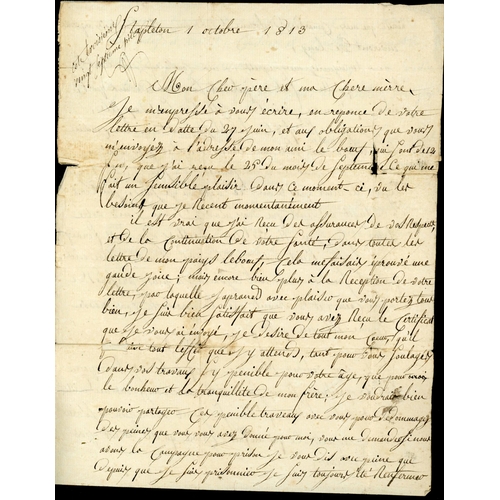 Stapleton 1 octobre 1813
Mon Cher pere et ma Chere mere
Je m'empresse à vous écrire, en reponce de votre
lettre en datte du 27 juin, et aux obligations que vous
m'envoyez à l'adresse de mon ami le bœuf, qui sont de 12
que j'ai recu le 25 du mois de Septembre Ce qui me
fait un sensible plaisir dans ce moment ci, vu les
besoins que je Recent momentanement
il est vrai que j'ai Recu des assurances de vos Respects
et de la Continuation de votre Santé, dans toutes les
lettre de mon païys lebœuf, Cela me faisais éprouvé une
gande joie; mais encore bien plus à la Reception de votre
lettre, par laquelle j'aprend avec plaisir que vous portez tous
bien, Je suis bien Satisfait que vous avez Recu le Certificat
que Je vous ai envoyé, Je desire de tout mon Coeur, qu'il
tout l'effet que j'y attends, tant pour vous soulager
dans vos travaux si penible pour votre âge, que pour
le bonheur et la tranquillite de mon frère, Je voudrais bien
pouvoir partager Ces penible traveaux avec vous pour dedommager
des peines que vous vous avez donné pour moi, vous me demandez si nous
avons la Campagne pour prison Je vous dis avec peine que
depuis que Je suis prisonnier Je suis toujours été Renfermé